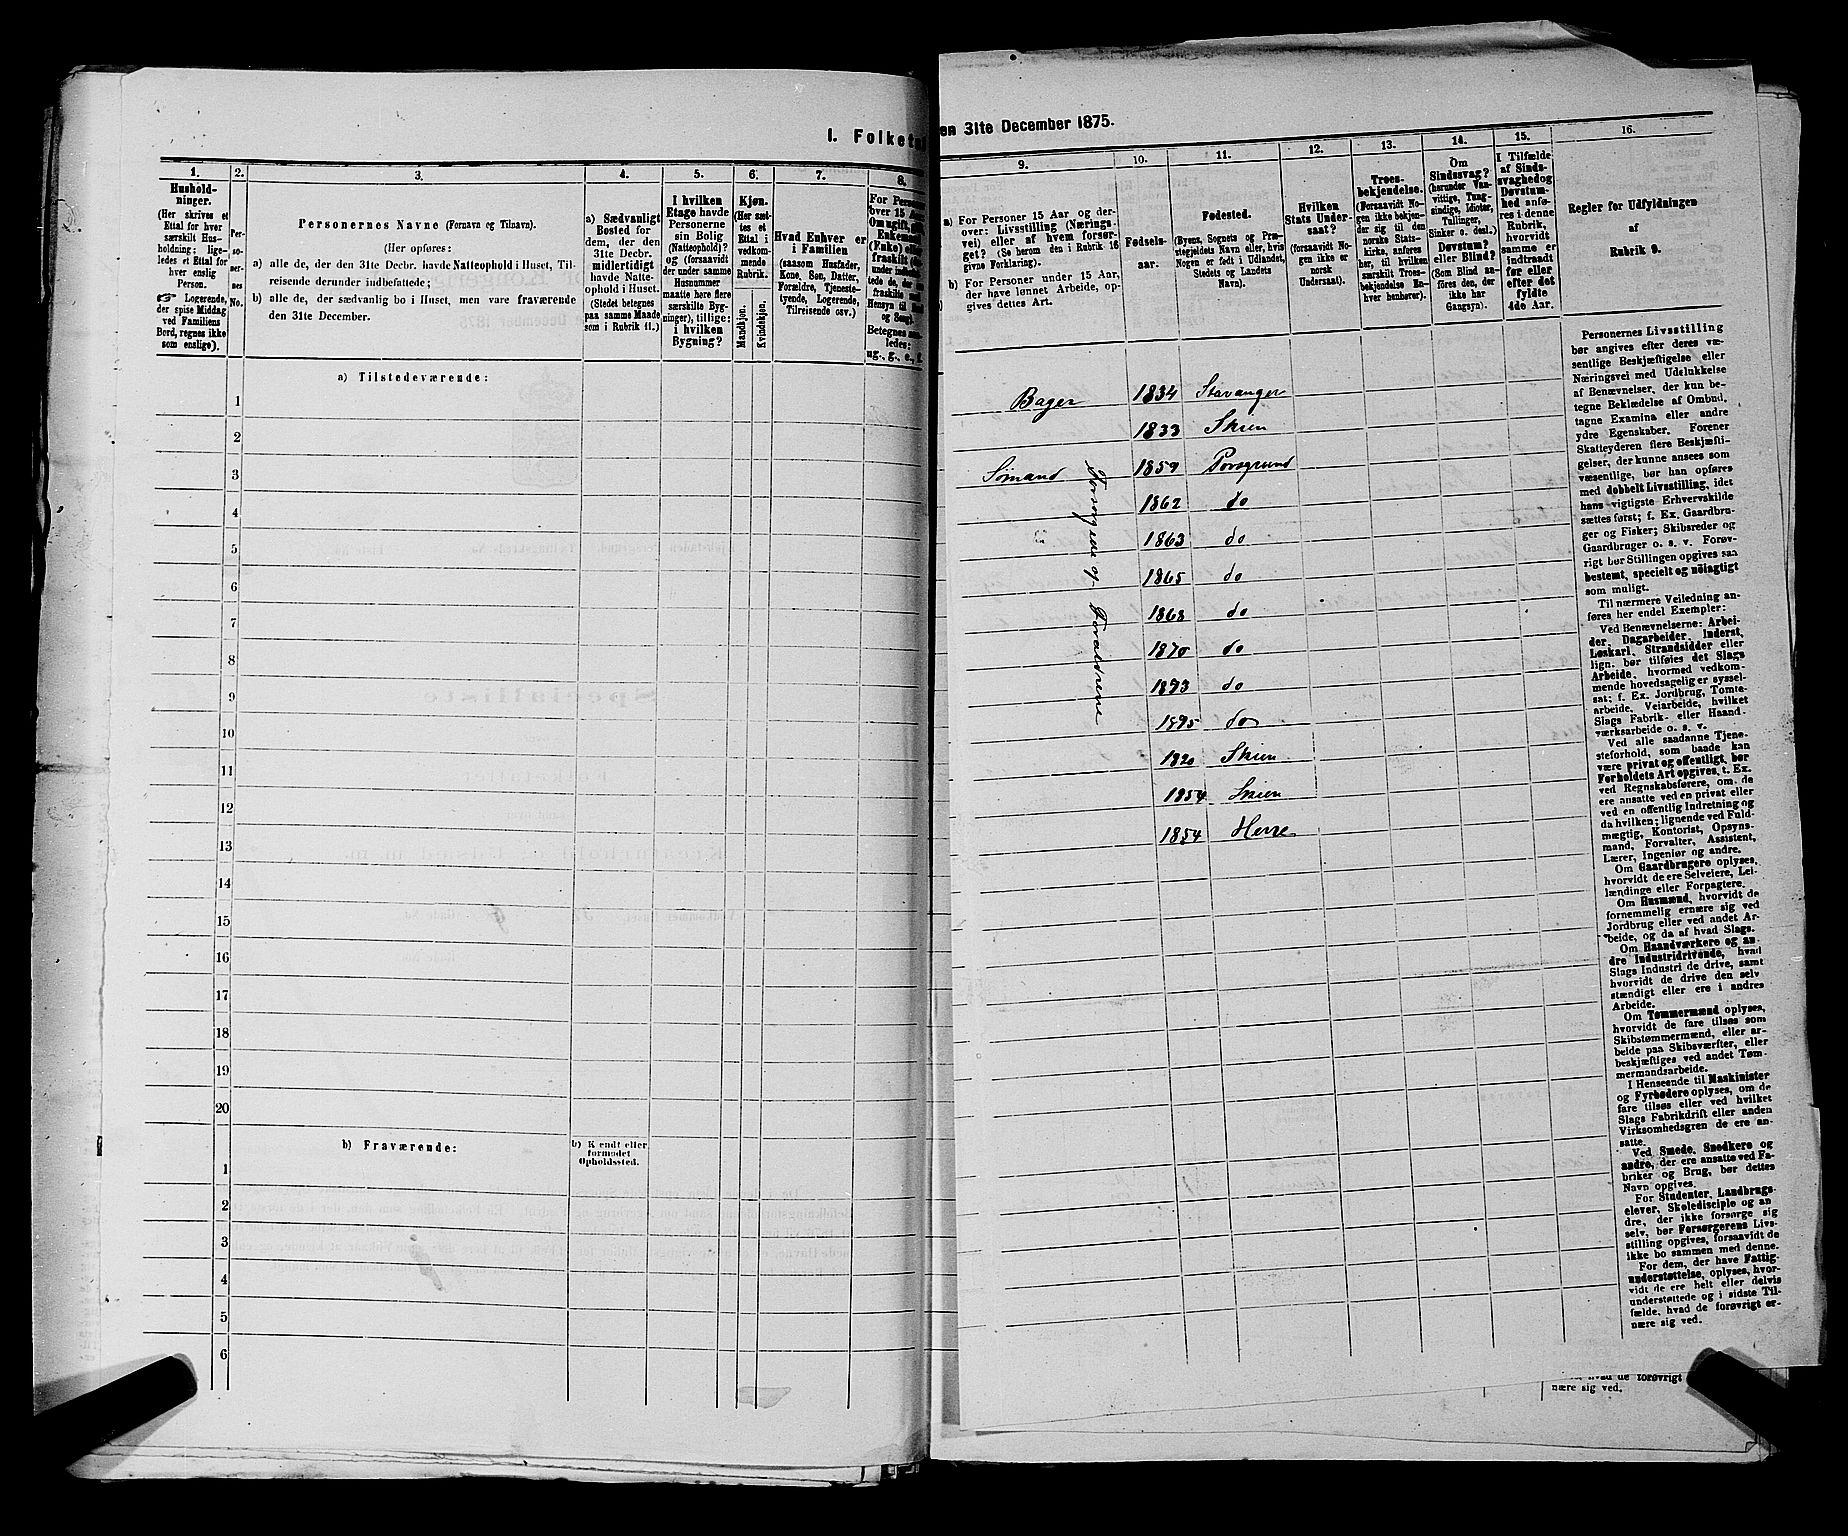 I. Folketæl
1.
2.
3.
4.
5.
6.
7.
8.
Hushold-
ninger.
(Her skrives et
Ettal for hver
særskilt Hus-
holdning; lige-
ledes et Ettal for
hver enslig
Person.
☞ Logerende,
der spise Middag
ved Familiens
Bord, regnes ikke
som enslige).
Per-
so-
ner-
nes
No.
Personernes Navne (Fornavn og Tilnavn).
(Her opføres:
a) alle de, der den 31te Decbr. havde Natteophold i Huset, Til-
reisende derunder indbefattede;
b) alle de, der sædvanlig bo i Huset, men vare fraværende
den 31te December.
a) Sædvanligt
Bosted for
dem, der den
31te Decbr.
midlertidigt
havde Natte-
ophold i Huset.
(Stedet betegnes
paa samme Maade
som i Rubrik 11.)
I hvilken
Etage havde
Personerne
sin Bolig
(Natteophold)?
og (forsaavidt
der under samme
Husnummer
maatte høre flere
særskilte Byg-
ninger), tillige:
i hvilken
Bygning?
Kjøn.
(Her sæt-
tes et
Ettal i
vedkom-
mende
Rubrik.
Mandkjøn.
Kvindekjøn.
Hvad Enhver er
i Familien
(saasom Husfader,
Kone, Søn, Datter,
Forældre, Tjeneste-
tyende, Logerende,
Tilreisende osv.)
For Persone
over 15 Aar
Om ugift, gi
Enkemand
(Enke) e
fraskilt
Betegnes saa-
ledes:
ug., g., e., f.
a) Tilstedeværende:
1
2
3
4
5
6
7
8
9
10
11
12
13
14
15
16
17
18
19
20
b) Fraværende:
b) Kjendt eller
formodet
Opholdssted.
1
2
3
4
5
6
en 31te December 1875.
9.
10.
11.
12.
13.
14.
15.
16.
a) For Personer 15 Aar og der-
over: Livsstilling (Nærings-
vei) eller af hvem forsør-
get? (Se herom den i Rubrik 16
givne Forklaring).
b) For Personer under 15 Aar,
der have lønnet Arbeide, op-
gives dettes Art.
Fødsels-
aar.
Fødested.
(Byens, Sognets og Præ-
stegjeldets Navn eller, hvis
Nogen er født i Udlandet,
Stedets og Landets
Navn).
Hvilken
Stats Under-
saat?
(forsaavidt No-
gen ikke er
norsk
Undersaat).
Troes-
bekjendelse.
(Forsaavidt No-
gen ikke bekjen-
der sig til den
norske Stats-
kirke, anføres
her, til hvilken
særskilt Troes-
bekjendelse En-
hver henhører).
Om
Sindssvag?
(herunder Van-
vittige, Tung-
sindige, Idioter,
Tullinger,
Sinker o. desl.)
Døvstum?
eller Blind?
(Som Blind an-
føres den, der
ikke har
Gangsyn).
I Tilfælde
af Sinds-
svaghed og
Døvstum-
hed anfø-
res i denne
Rubrik,
hvorvidt
samme er
indtraadt
før eller
efter det
fyldte
4de Aar.
Regler for Udfyldningen
af
Rubrik 9.
Bager 1834 Stavanger
1833 Skien
Sømand 1859 Porsgrund
1862 do
1863 do
1865 do
1868 do
1870 do
1873 do
1875 do
1820 Skien
1854 Skien
1854 Herre
Forsørgede af Forældrene
Personernes Livsstilling
bør angives efter deres væ-
sentlige Beskjæftigelse eller
Næringsvei med Udelukkelse
af Benævnelser, der kun be-
tegne Beklædelse af Ombud,
tagne Examina eller andre
ydre Egenskaber. Forener
Skatteyderen flere Beskjæfti-
gelser, der kunne ansees som
væsentlige, bør han opføres
med dobbelt Livsstilling, idet
hans vigtigste Erhvervskilde
sættes først; f. Ex. Gaardbru-
ger og Fisker; Skibsreder og
Gaardbruger o. s. v. Forøv-
rigt bør Stillingen opgives saa
bestemt, specielt og nöiagtigt
som muligt.
Til nærmere Veiledning an-
føres her endel Exempler:
Ved Benævnelserne: Arbei-
der, Dagarbeider, Inderst,
Løskarl, Strandsidder eller
lign. bør tilføies det Slags
Arbeide, hvormed vedkom-
mende hovedsagelig er syssel-
sat; f. Ex. Jordbrug, Tomte-
arbeide, Veiarbeide, hvilket
Slags Fabrik- eller Haand-
værksarbeide o. s. v.
Ved alle saadanne Tjene-
steforhold, som baade kan
være privat og offentligt, bør
Forholdets Art opgives, t. Ex.
ved Regnskabsførere, om de
ere ansatte ved en privat eller
ved en offentlig Indretning og
da hvilken; lignende ved Fuld-
mægtig, Kontorist, Opsyns-
mand, Forvalter, Assistent,
Lærer, Ingeniør og andre.
Om Gaardbrugere oplyses,
hvorvidt de ere Selveiere, Lei-
lændinge eller Forpagtere.
Om Husmænd, hvorvidt de
fornemmelig ernære sig ved
Jordbrug eller ved andet Ar-
beide, og da af hvad Slags.
Om Haandværkere og an-
dre Industridrivende, hvad
Slags Industri de drive, samt
hvorvidt de drive den selv
stændigt eller ere i andres
Arbeide.
Om Tømmermænd oplyses,
hvorvidt de fare tilsøs som
Skibstømmermænd, eller ar-
beide paa Skibsværfter, eller
beskjæftiges ved andet Tøm-
mermandsarbeide.
I Henseende til Maskinister
og Fyrbødere oplyses, om de
fare tilsøs eller ved hvilket
Slags Fabrikdrift eller anden
Virksomhedsgren de ere an-
satte.
Ved Smede, Snedkere og
andre, der ere ansatte ved Fa-
briker og Brug, bør dettes
Navn opgives.
For Studenter, Landbrugs-
elever, Skoledisciple og an
dre, der ikke forsørge sig
selv, bør Forsørgerens Livs-
stilling opgives, forsaavidt de
ikke bo sammen med denne.
For dem, der have Fattig-
understøttelse, oplyses, hvor-
vidt de ere helt eller delvis
understøttede og i sidste Til-
fælde, hvad de forøvrigt er-
nære sig ved.
hvad de forøvrigt
nære sig ved.